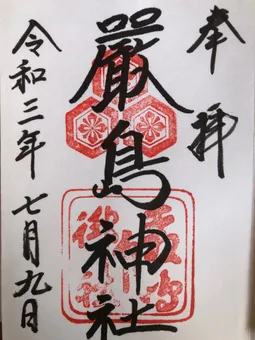 奉拝
厳島神社
令和三年七月九日